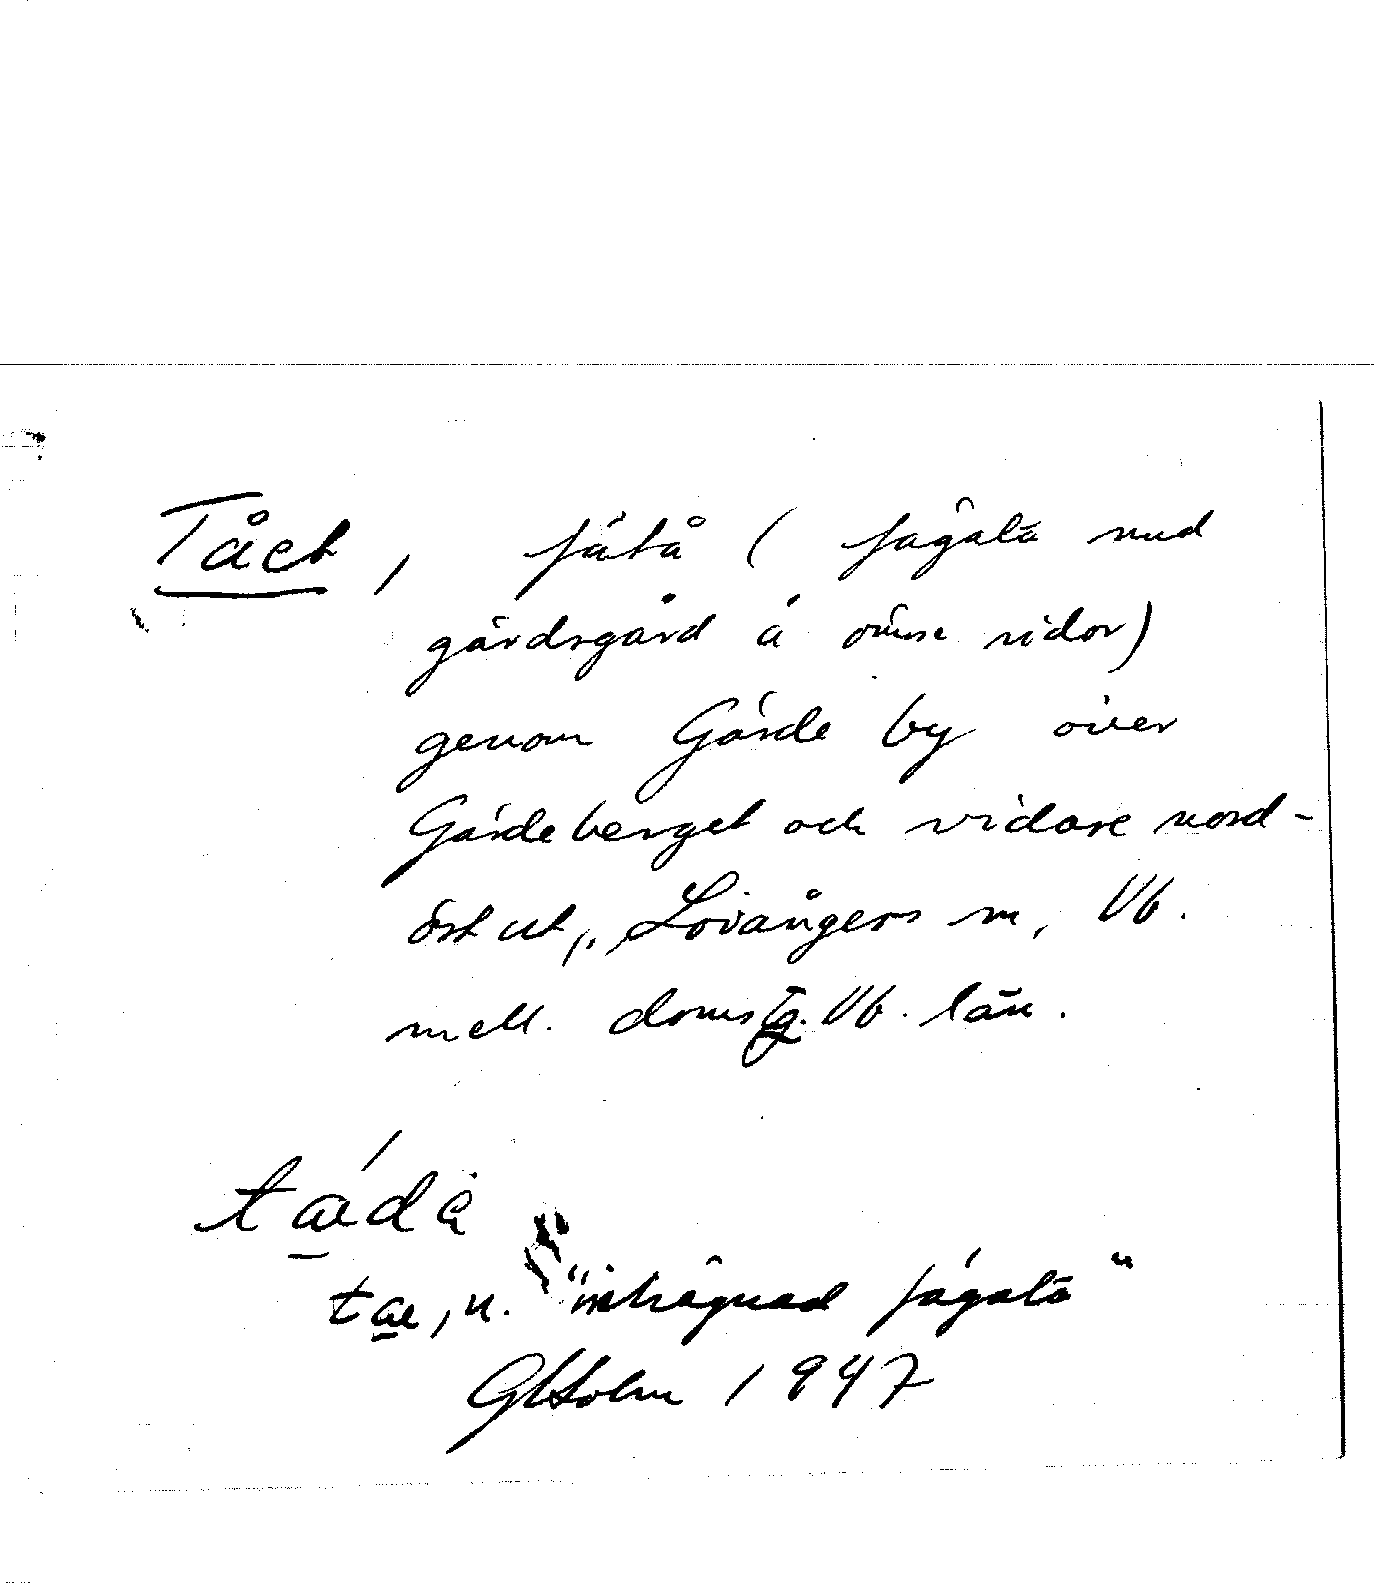 Tået, fätå (fägata med
gärdsgård å ömse sidor)
genom Gärde by över
Gärdeberget och vidare nord-
öst ut, Lövångers sn, Vb.
mell. doms tg. Vb. län.
tæ, n. "inhägnad fägata"
GHolm 1947